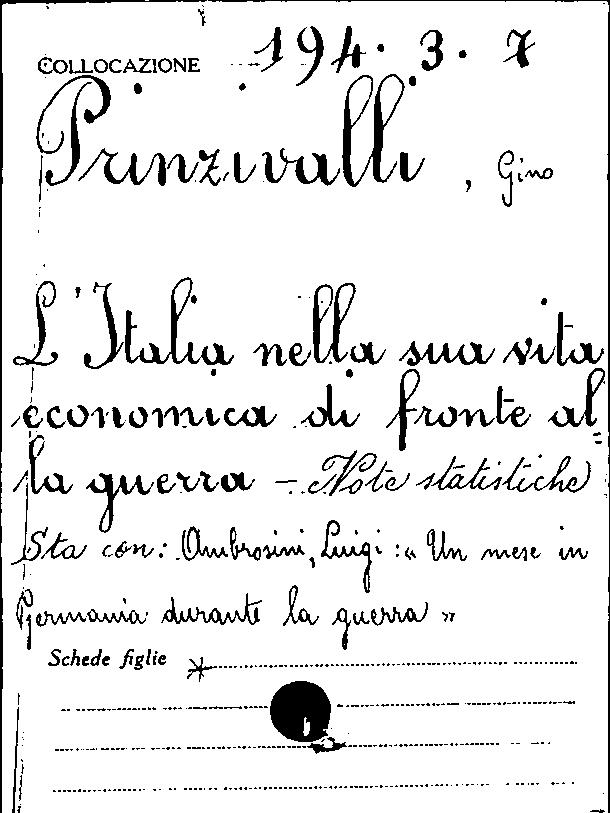 COLLOCAZIONE 194. 3. 7
Prinzivalli, Gino
L'Italia nella sua vita
economica di fronte al=
la guerra - Note statistiche
Sta con: Ambrosini, Luigi: « Un mese in
Germania durante la guerra »
Schede figlie